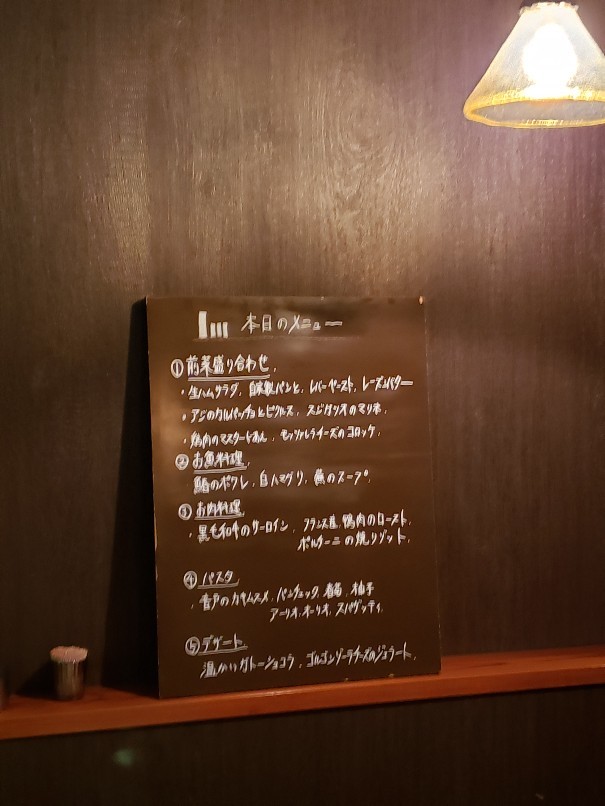 本日のメニュー
①前菜盛り合わせ
・生ハムサラダ、自家製パンと、レバーペースト、レーズンバター
・アジのカルパッチョとピクルス、スジガツオのマリネ
・鶏肉のマスタードあん、モッツァレラチーズのコロッケ
②お魚料理
鰆のポワレ、白ハマグリ、蕪のスープ
③お肉料理
・黒毛和牛のサーロイン、フランス産、鴨肉のロースト、
ポルチーニの焼リゾット、
④パスタ
・音戸のカキムスメ、パンチェッタ、春菊、柚子
アーリオ、オーリオ、スパゲッティ
⑤デザート
温かいガトーショコラ、ゴルゴンゾーラチーズのジェラート、